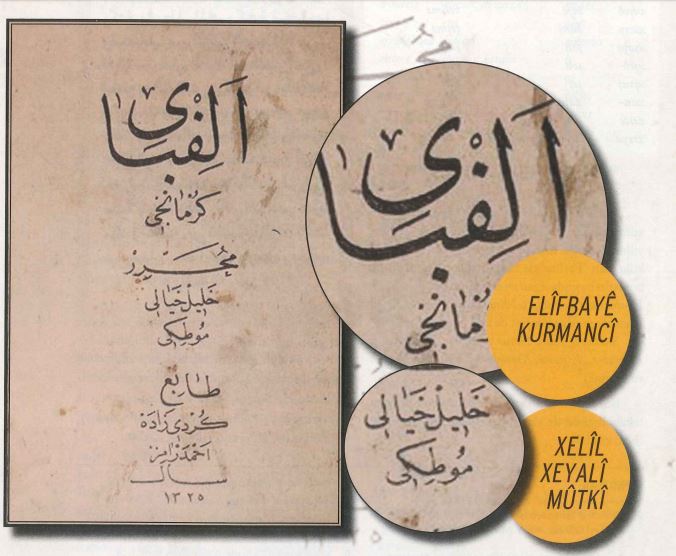 اَلِفبَاىِ
كُرْمَانْجِى
مُحَرِّرْ
خَلِيلْ خَيَالِى
مُوطِكِى
طَابِعْ
كُرْدِى زَادَهْ
اَحْمَدْ رَامِزْ
سال
١٣٢٥
اَلِفبَاىِ
كُرْمَانْجِى
ELÎFBAYÊ
KURMANCÎ
خَلِيلْ خَيَالِى
مُوطِكِى
XELÎL
XEYALÎ
MÛTKÎ